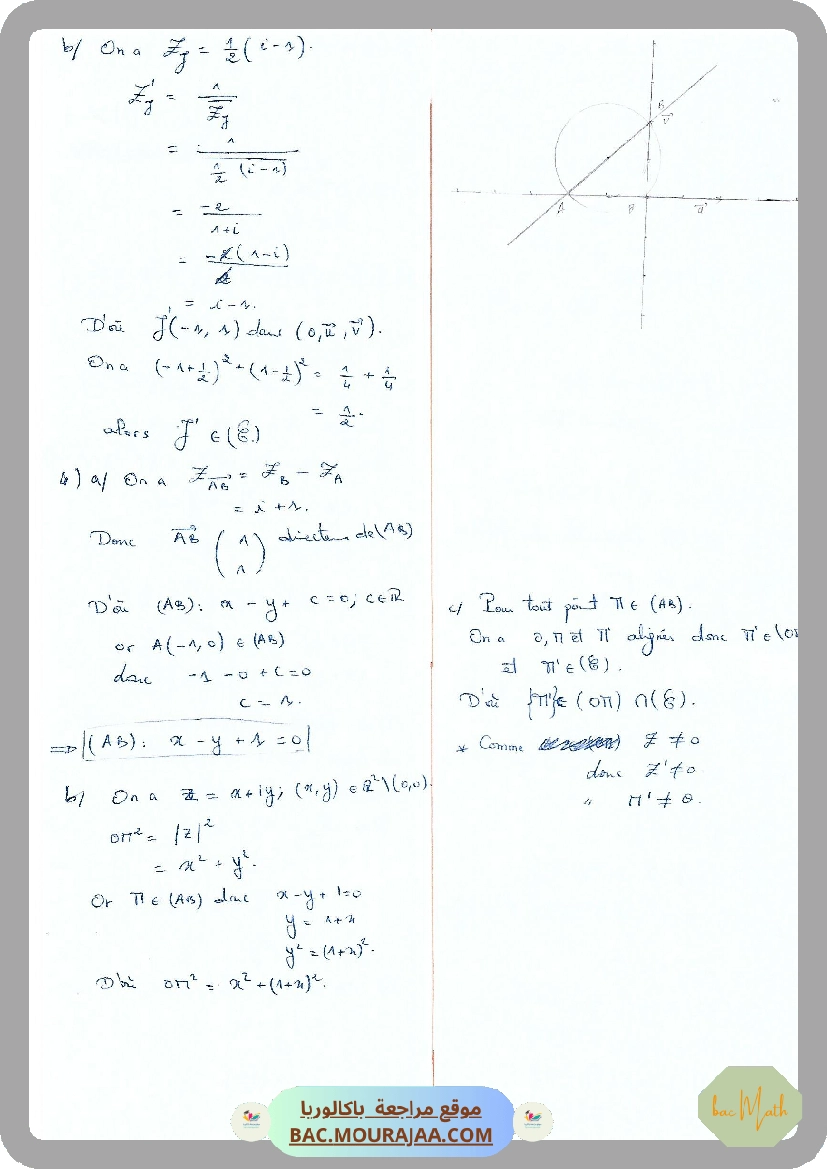 b/ On a Z_J = 1/2 (i-1).
Z'_J = 1/Z̄_J
= 1/(1/2 (i-1))
= -2/(1+i)
= -2(1-i)/2
= i-1.
D'où J'(-1, 1) dans (O, u⃗, v⃗).
On a (-1+1/2)² + (1-1/2)² = 1/4 + 1/4
= 1/2.
alors J' ∈ (ℭ)
4) a/ On a Z_AB⃗ = Z_B - Z_A
= i + 1.
Donc AB⃗ (1 1) directeur de (AB)
D'où (AB): x - y + c = 0; c ∈ ℝ
or A(-1, 0) ∈ (AB)
donc -1 - 0 + c = 0
c = 1.
⇒ (AB): x - y + 1 = 0
b/ On a Z = x+iy; (x,y) ∈ ℝ²\(0,0).
OM² = |Z|²
= x² + y².
Or M ∈ (AB) donc x - y + 1 = 0
y = 1+x
y² = (1+x)².
D'où OM² = x² + (1+x)².
B
v⃗
A
u⃗
c/ Pour tout point M ∈ (AB).
On a O, M et M' alignés donc M' ∈ (OM
et M' ∈ (ℭ).
D'où {M'} ∈ (OM) ∩ (ℭ).
* Comme Z ≠ 0
donc Z' ≠ 0
" M' ≠ O.
موقع مراجعة باكالوريا
BAC.MOURAJAA.COM
bac Math